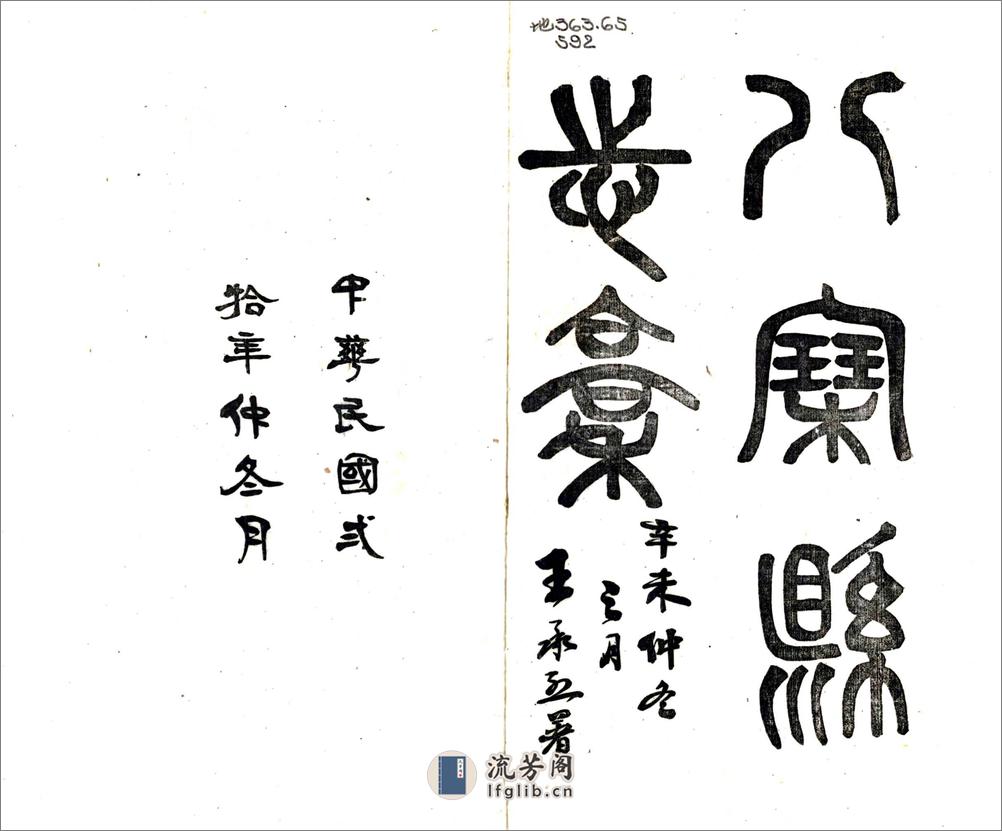 地363.65
592
八寨縣
志稾
辛未仲冬
之月
王承烈署
中華民國弍
拾年仲冬月
流芳阁
lfglib.cn